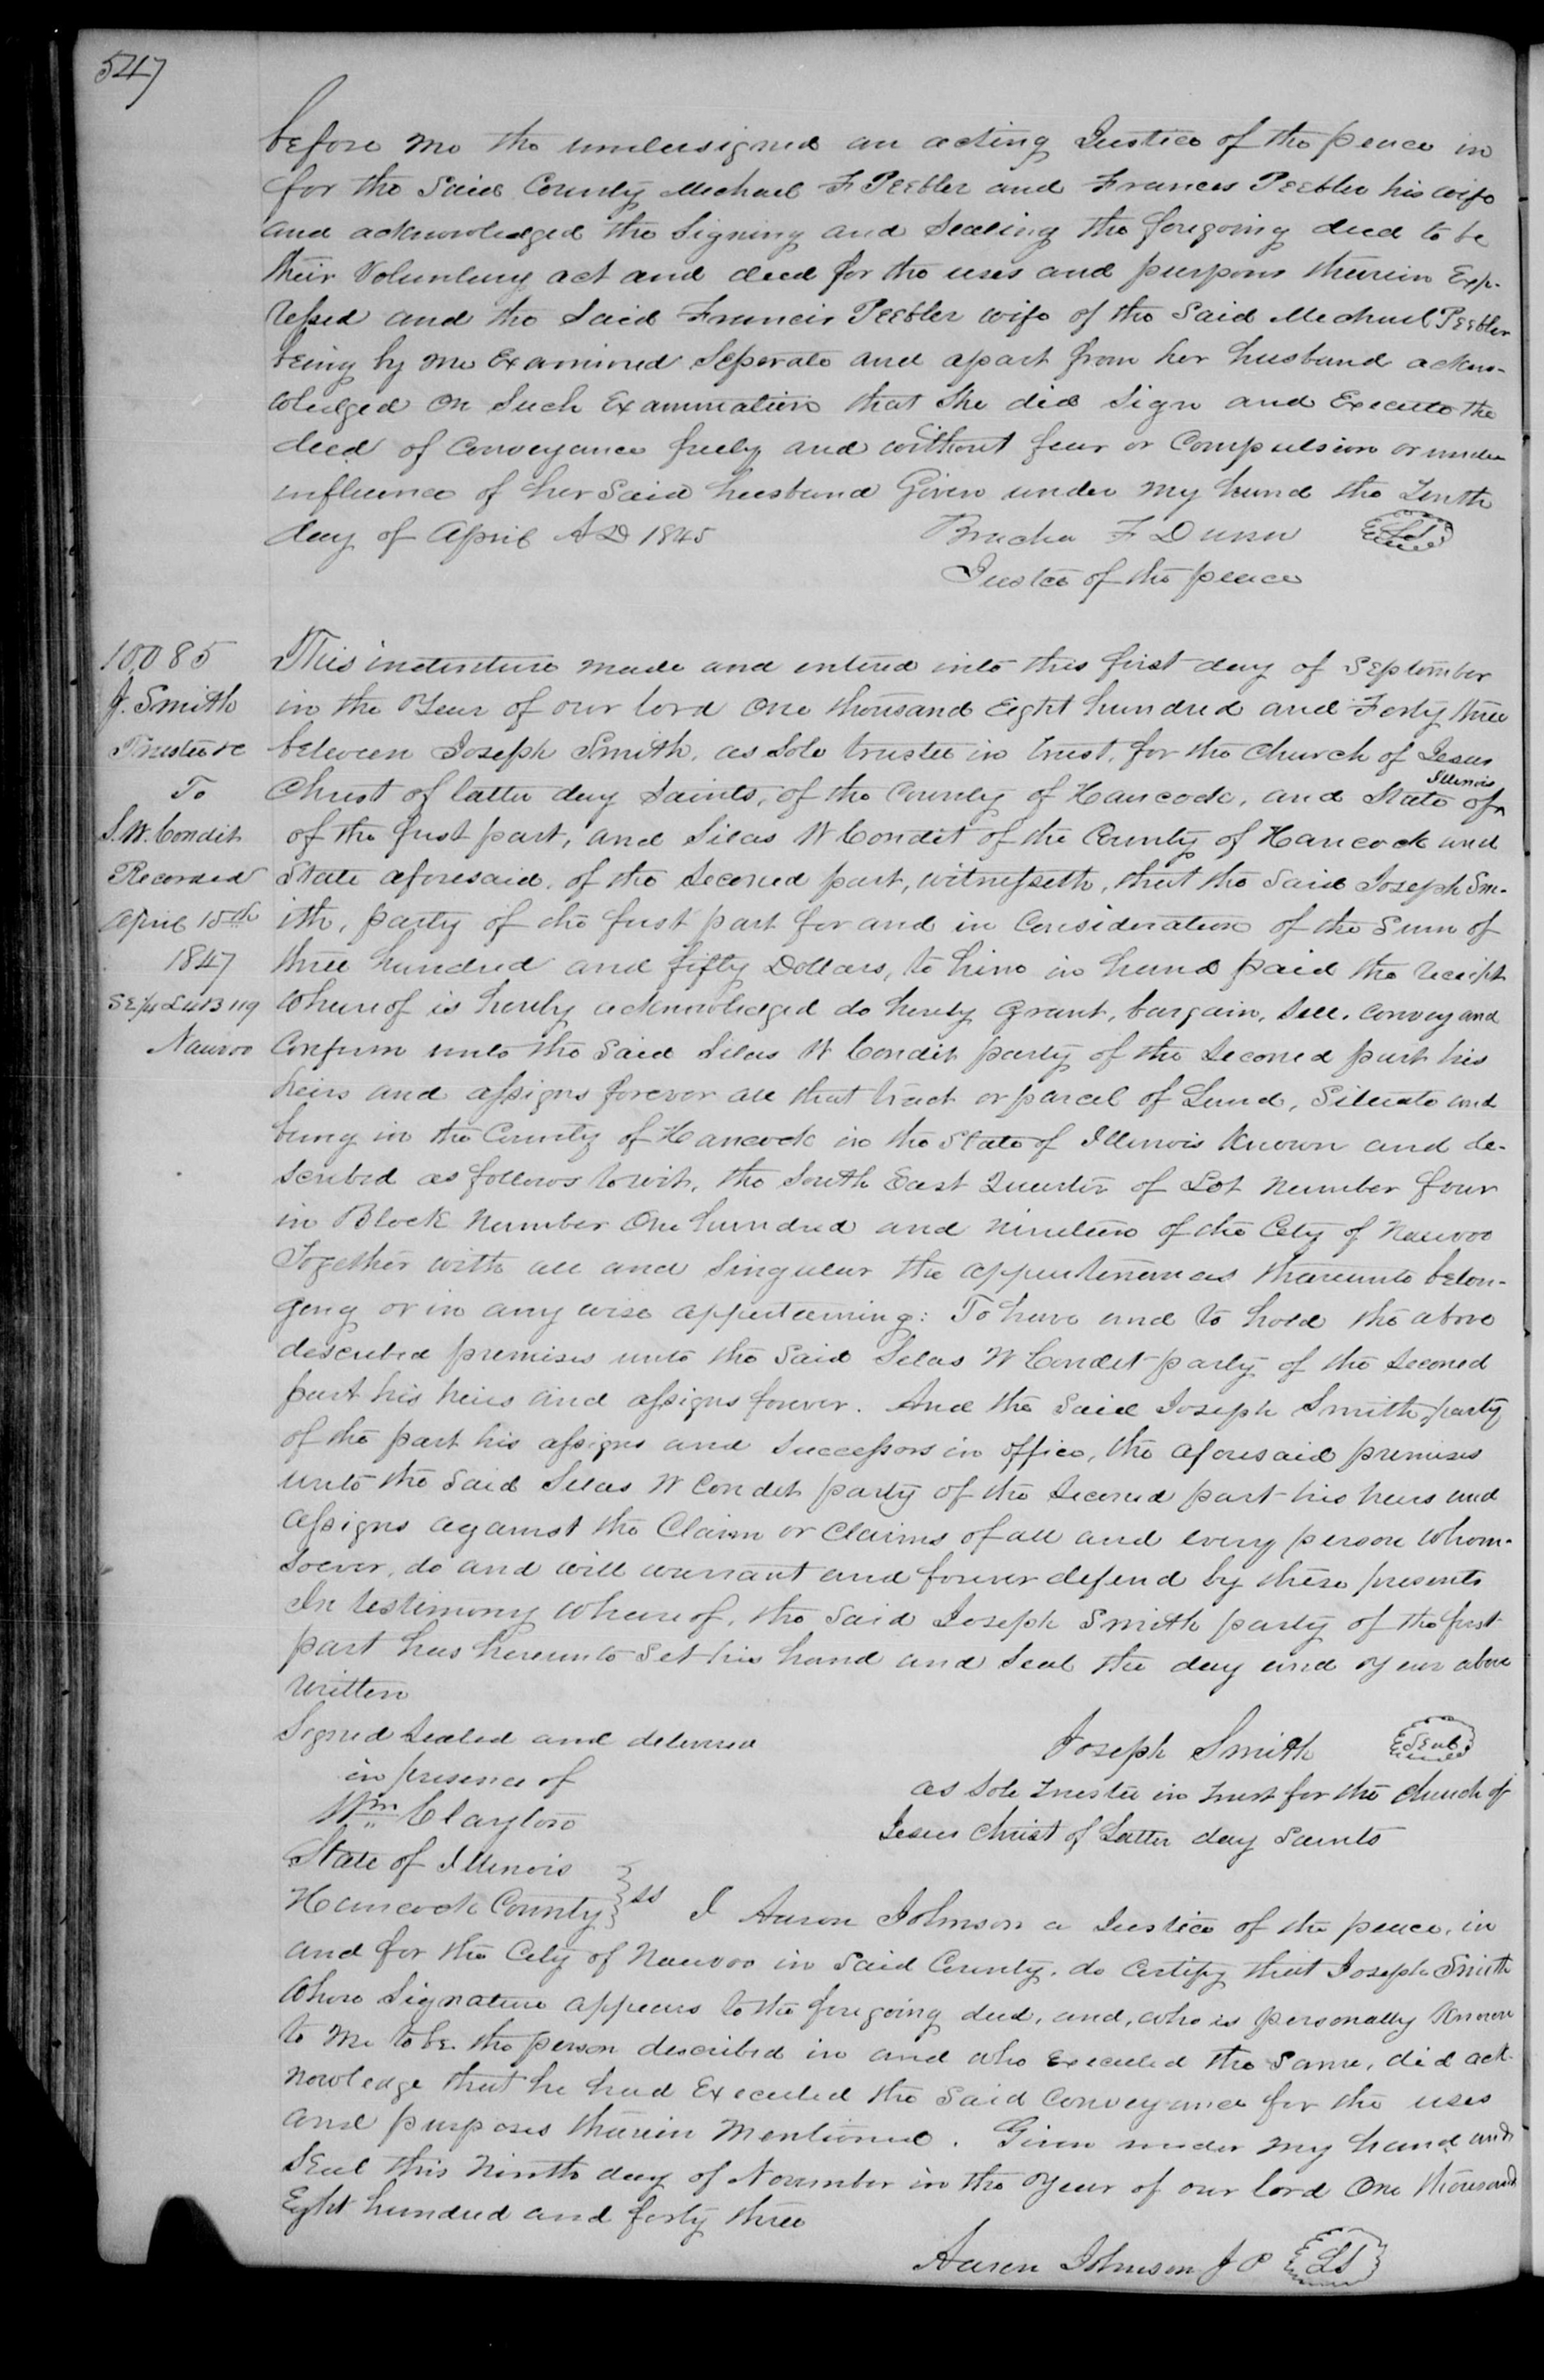 547
before me the undersigned an acting Justice of the peace in
for the Said County Michael F Peebler and Frances Peebler his wife
and acknowledged the Signing and Sealing the foregoing deed to be
their Voluntary act and deed for the uses and purposes therein Exp-
ressed and the Said Francis Peebler wife of the Said Michael Peebler
being by me Examined Seperate and apart from her husband ackno-
wledged on Such Examination that She did Sign and Execute the
deed of Conveyance freely and without fear or Compulsion or under
influence of her Said husband Given under my hand the Tenth
day of April A D 1845
F Dunn
LS
Justce of the peace
10,085
J. Smith
Trustee &c
To
S. W. Condit
Recorded
April 15th
1847
SE 1/4 L4 B 119
Nauvoo
This indenture made and entered into this first day of September
in the Year of our lord One thousand Eight hundred and Forty three
between Joseph Smith, as Sole trustee in trust, for the Church of Jesus
Christ of latter day Saints, of the County of Hancock, and State of Illinois
of the first part, and Silas W Condit of the County of Hancock and
State aforesaid, of the Second part, witnesseth, that the Said Joseph Sm-
ith, party of the first part for and in Consideration of the Sum of
three hundred and fifty Dollars, to him in hand paid the receipt
whereof is hereby acknowledged do hereby Grant, bargain, Sell, Convey and
Confirm unto the Said Silas W Condit party of the Second part his
heirs and assigns forever all that tract or parcel of Land, Situate and
being in the County of Hancock in the State of Illinois Known and de-
scribed as follows towit, the South East Quarter of Lot Number four
in Block Number One hundred and nineteen of the City of Nauvoo
Together with all and Singular the appurtenances thereunto belon-
ging or in any wise appertaining: To have and to hold the above
described premises unto the Said Silas W Condit party of the Second
part his heirs and assigns forever. And the Said Joseph Smith party
of the part his assigns and Successors in office, the aforesaid premises
unto the Said Silas W Condit party of the Second part his heirs and
assigns against the Claim or Claims of all and every person whom-
soever, do and will warrant and forever defend by these presents
In testimony whereof, the Said Joseph Smith party of the first
part has hereunto Set his hand and Seal the day and year above
written
Signed Sealed and delivered
in presence of
Wm Clayton
Joseph Smith
Seal
as Sole Trustee in Trust for the Church of
Jesus Christ of Latter day Saints
State of Illinois
Hancock County } SS I Aaron Johnson a Justice of the peace, in
and for the City of Nauvoo in Said County, do Certify that Joseph Smith
whose Signature appears to the foregoing deed, and, who is personally Known
to me to be the person described in and who Executed the Same, did ack-
nowledge that he had Executed the Said Conveyance for the uses
and purposes therein Mentioned. Given under my hand and
Seal this Ninth day of November in the Year of our lord One thousand
Eight hundred and forty three
Aaron Johnson J P
LS